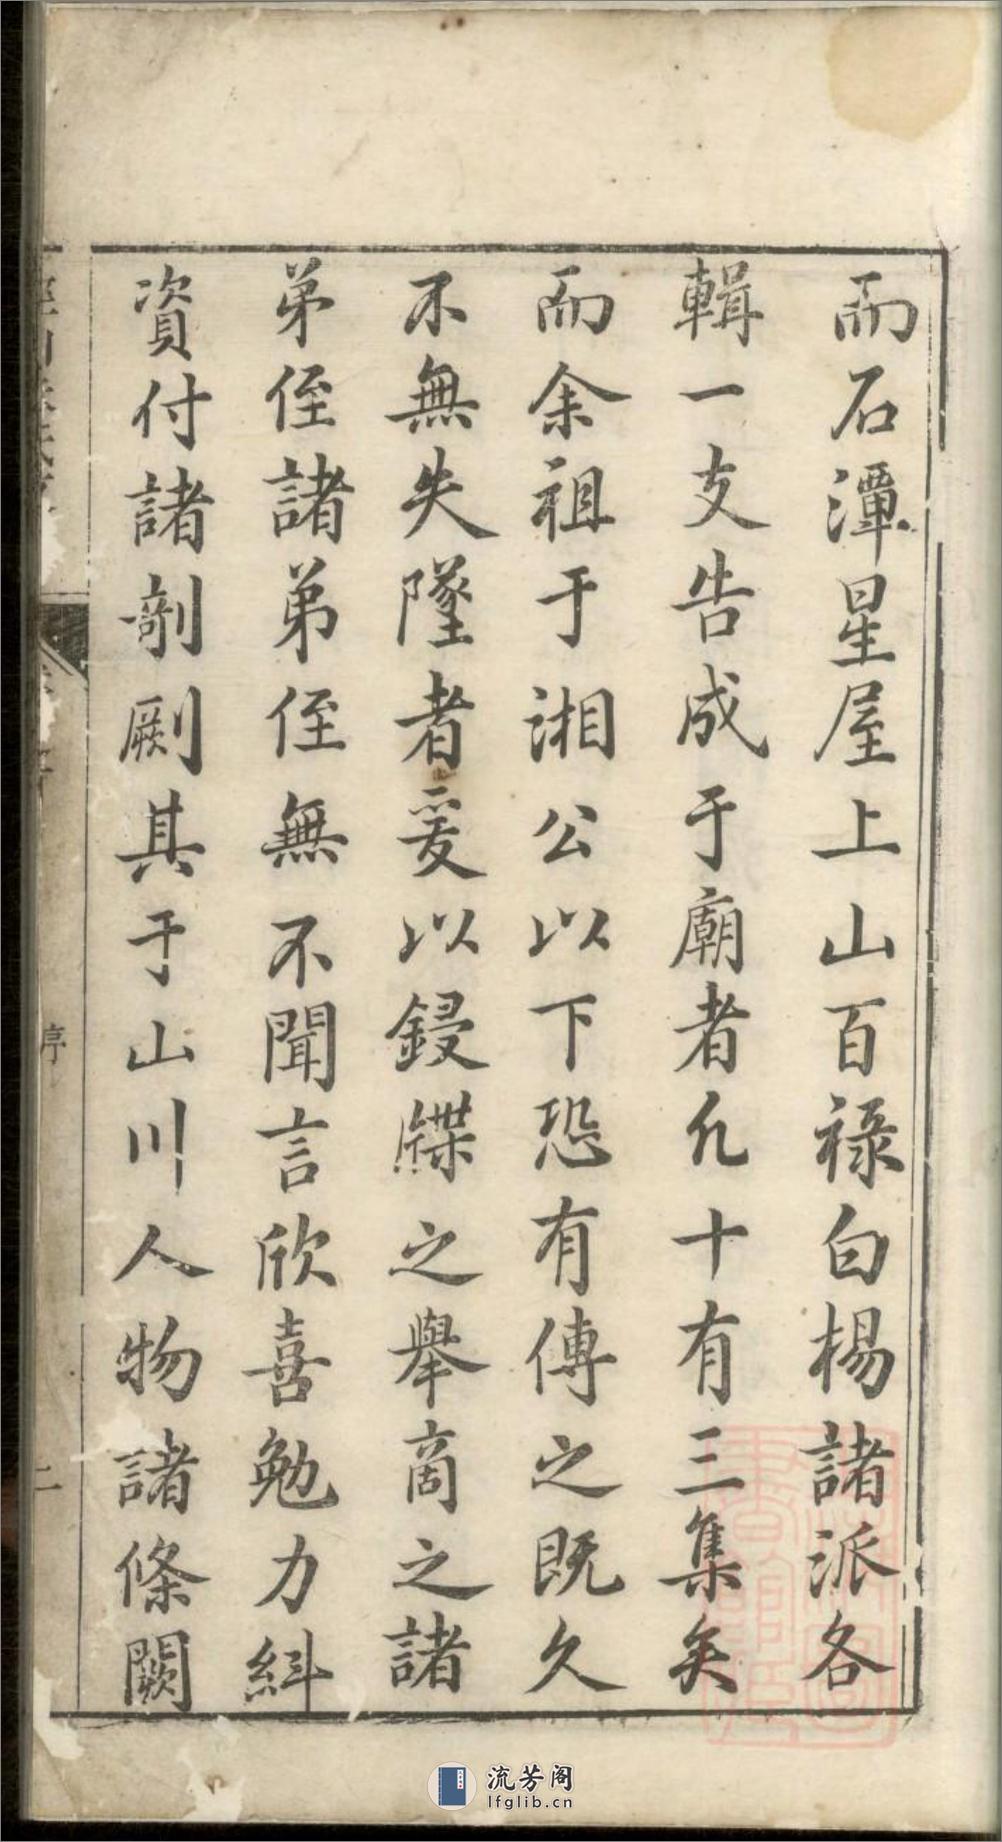 而石潭星屋上山百祿白楊諸派各
輯一支告成于廟者凡十有三集矣
而余祖于湘公以下恐有傳之既久
不無失墜者爰以鋟牒之舉商之諸
弟侄諸弟侄無不聞言欣喜勉力糾
資付諸剞劂其于山川人物諸條闕
序
二
流芳阁
lfglib.cn